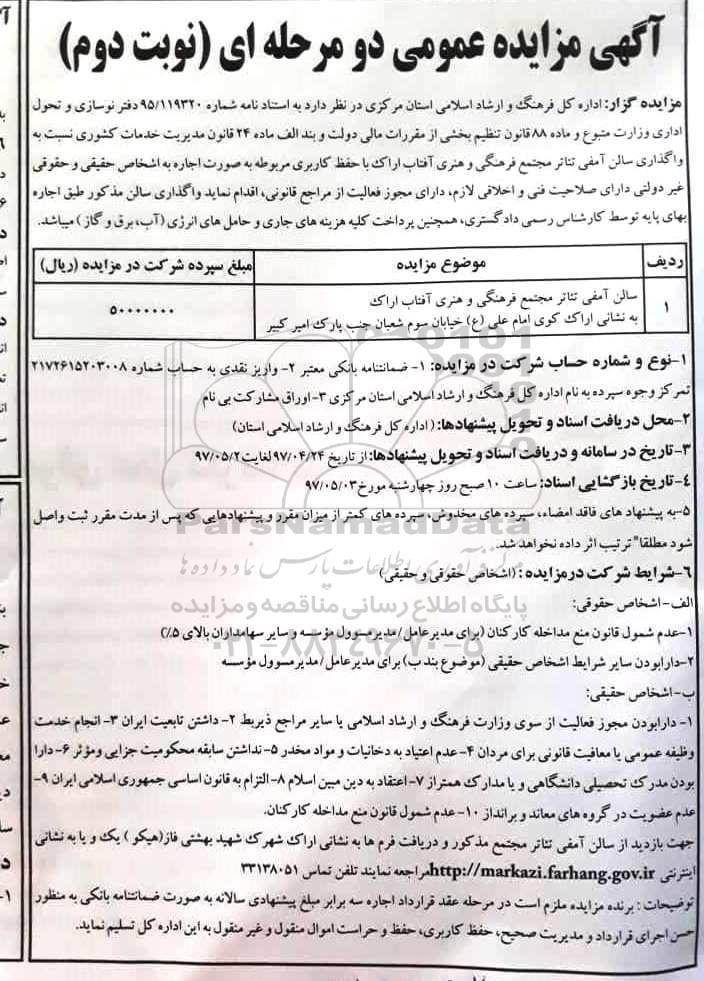 آگهی مزایده عمومی دو مرحله ای (نوبت دوم)
مزایده گزار: اداره کل فرهنگ و ارشاد اسلامی استان مرکزی در نظر دارد به استناد نامه شماره ۹۵/۱۱۹۳۲۰ دفتر نوسازی و تحول
اداری وزارت متبوع و ماده ۸۸ قانون تنظیم بخشی از مقررات مالی دولت و بند الف ماده ۲۴ قانون مدیریت خدمات کشوری نسبت به
واگذاری سالن آمفی تئاتر مجتمع فرهنگی و هنری آفتاب اراک با حفظ کاربری مربوطه به صورت اجاره به اشخاص حقیقی و حقوقی
غیر دولتی دارای صلاحیت فنی و اخلاقی لازم، دارای مجوز فعالیت از مراجع قانونی، اقدام نماید واگذاری سالن مذکور طبق اجاره
بهای پایه توسط کارشناس رسمی دادگستری، همچنین پرداخت کلیه هزینه های جاری و حامل های انرژی (آب، برق و گاز ) میباشد.
ردیف موضوع مزایده مبلغ سپرده شرکت در مزایده (ریال)
۱ سالن آمفی تئاتر مجتمع فرهنگی و هنری آفتاب اراک ۵۰۰۰۰۰۰۰
به نشانی اراک کوی امام علی (ع) خیابان سوم شعبان جنب پارک امیر کبیر
۱-نوع و شماره حساب شرکت در مزایده: ۱- ضمانتنامه بانکی معتبر ۲- واریز نقدی به حساب شماره ۲۱۷۲۶۱۵۲۰۳۰۰۸
تمرکز وجوه سپرده به نام اداره کل فرهنگ و ارشاد اسلامی استان مرکزی ۳-اوراق مشارکت بی نام
۲-محل دریافت اسناد و تحویل پیشنهادها: ( اداره کل فرهنگ و ارشاد اسلامی استان)
۳-تاریخ در سامانه و دریافت اسناد و تحویل پیشنهادها: از تاریخ ۹۷/۰۴/۲۴ لغایت ۹۷/۰۵/۲
۴-تاریخ بازگشایی اسناد: ساعت ۱۰ صبح روز چهارشنبه مورخ ۹۷/۰۵/۰۳
۵-به پیشنهاد های فاقد امضاء، سپرده های مخدوش، سپرده های کمتر از میزان مقرر و پیشنهادهایی که پس از مدت مقرر ثبت واصل
شود مطلقا" ترتیب اثر داده نخواهد شد.
۶-شرایط شرکت در مزایده : (اشخاص حقوقی و حقیقی)
الف-اشخاص حقوقی:
۱-عدم شمول قانون منع مداخله کارکنان (برای مدیرعامل/ مدیرمسوول مؤسسه و سایر سهامداران بالای ۵٪)
۲-دارابودن سایر شرایط اشخاص حقیقی (موضوع بند ب) برای مدیرعامل/ مدیرمسوول مؤسسه
ب-اشخاص حقیقی:
۱- دارابودن مجوز فعالیت از سوی وزارت فرهنگ و ارشاد اسلامی یا سایر مراجع ذیربط ۲- داشتن تابعیت ایران ۳- انجام خدمت
وظیفه عمومی یا معافیت قانونی برای مردان ۴-عدم اعتیاد به دخانیات و مواد مخدر ۵-نداشتن سابقه محکومیت جزایی ومؤثر ۶-دارا
بودن مدرک تحصیلی دانشگاهی و یا مدارک همتراز ۷-اعتقاد به دین مبین اسلام ۸-التزام به قانون اساسی جمهوری اسلامی ایران ۹-
عدم عضویت در گروه های معاند و برانداز ۱۰-عدم شمول قانون منع مداخله کارکنان.
جهت بازدید از سالن آمفی تئاتر مجتمع مذکور و دریافت فرم ها به نشانی اراک شهرک شهید بهشتی فاز(هپکو ) یک و یا به نشانی
اینترنتی http://markazi.farhang.gov.ir مراجعه نمایند تلفن تماس ۳۳۱۳۸۰۵۱
توضیحات : برنده مزایده ملزم است در مرحله عقد قرارداد اجاره سه برابر مبلغ پیشنهادی سالانه به صورت ضمانتنامه بانکی به منظور
حسن اجرای قرارداد و مدیریت صحیح، حفظ کاربری، حفظ و حراست اموال منقول و غیر منقول به این اداره کل تسلیم نماید.
ParsNamadData
مرکز فرآوری اطلاعات پارس نماد داده ها
پایگاه اطلاع رسانی مناقصه و مزایده
۰۲۱-۸۸۳۴۹۶۷۰-۵